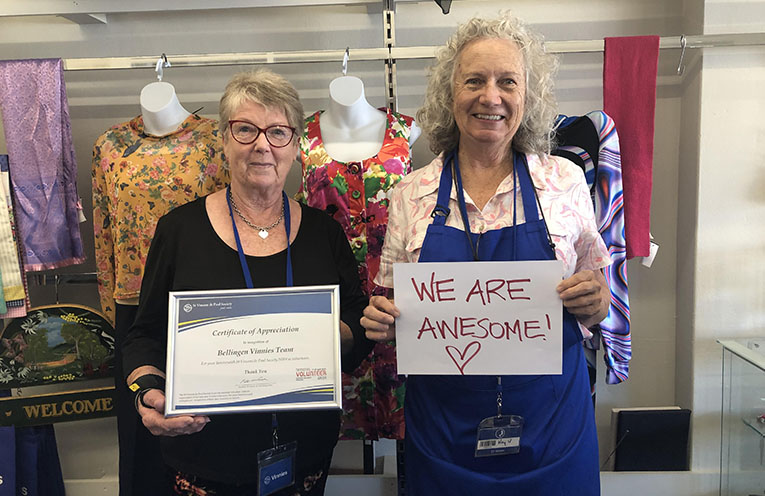 St Vincent de Paul Society
Certificate of Appreciation
In recognition of
Bellingen Vinnies Team
Thank You
VOLUNTEER
WE ARE
AWESOME!
WELCOME
Vinnies